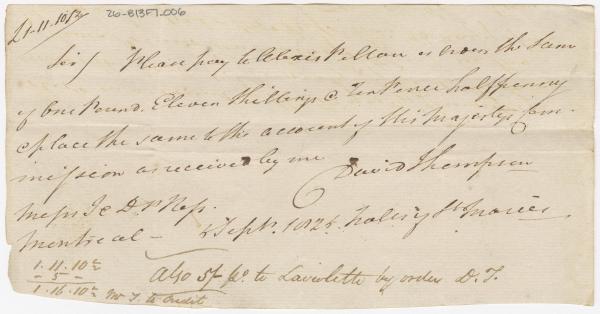 £1.11.10½
26-B13F1-006
Sir / Please pay to Alexis Peltau or order the Sum
of One Pound. Eleven Shillings & Ten Pence halfpenny
& place the same to the account of His Majestys Com-
mission as received by me
David Thompson
Messrs Ie D. Ross.
Montreal — 4 Septr. 1824. Falls of St Maries
1.11.10½
- 5 -
1.16.10½ Mr T. to Credit
Also 5/ pd. to Laviolette by order D. T.